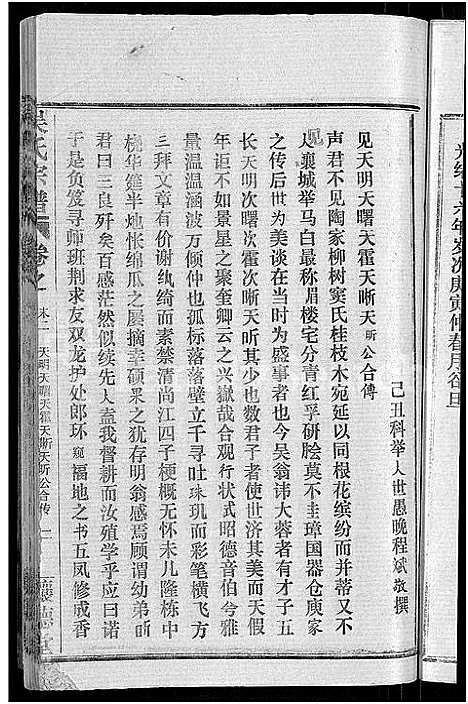 光绪十六年岁次庚寅仲春月谷旦
己丑科举人世愚晚程斌敬撰
见天明天曙天霍天晰天昕公合傳
声君不见陶家柳树窦氏桂枝木宛延以同根花缤纷而并蒂又不
见
人襄城举马白最称眉楼宅分青红孚研脍莫不圭璋国器仓庾家
之传后世为美谈在当时为盛事者也今吴翁讳大蓉者有才子五
长天明次曙次霍次晰天昕其少也数君子者使世济其美而天假
年讵不如景星之聚奎卿云之兴嶽哉合观行状式昭德音伯兮雅
量温温涵波万倾仲也孤标落落壁立千寻吐珠玑而彩笔横飞方
三拜文章有价谢纨绮而素禁清尚江四子梗概无怀未儿隆栋中
桡华筵半灺怅绵瓜之屡摘幸硕果之犹存明翁感焉顾谓幼弟昕
君曰三良歼矣百感茫然似续先人盍我督耕而汝殖学乎应曰诺
于是负笈寻师班荆求友双龙护处郎环窥福地之书五凤修成香
吴氏宗谱
卷之
末一
天明天曙天霍天晰天昕公合传
二